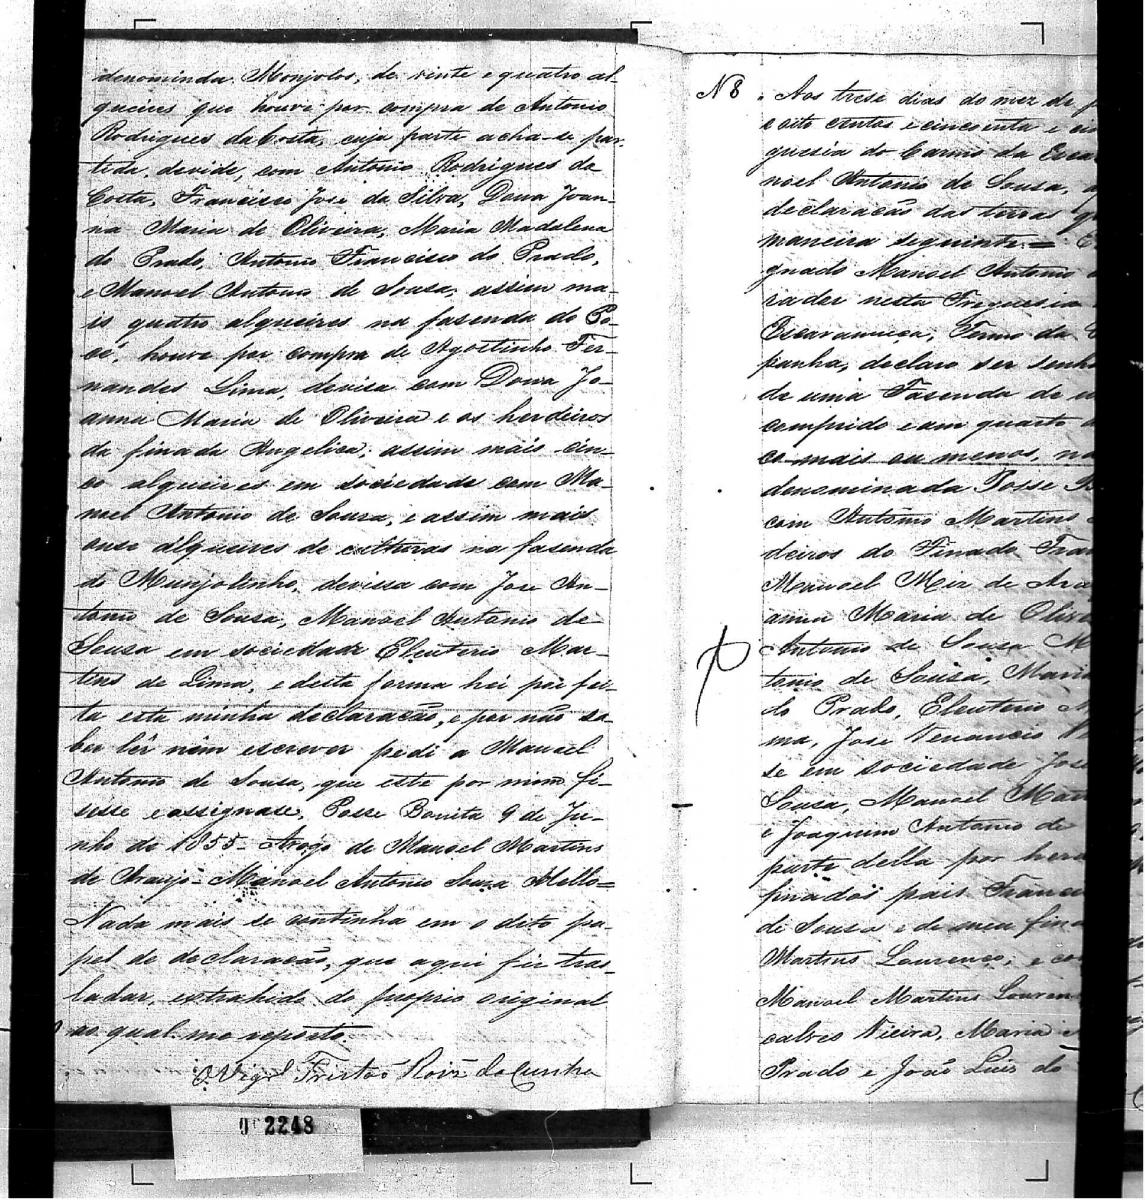 denominda Monjolos, de vinte e quatro al-
queires que houve por compra de Antonio
Rodrigues da Costa, cuja parte acha-se par
tida, devide, com Antonio Rodrigues da
Costa, Francisco José da Silva, Dona Joan-
na Maria de Oliveira, Maria Madalena
do Prado, Antonio Francisco do Prado,
e Manoel Antonio de Sousa, assim ma-
is quatro alqueires na fasenda do Po-
ço, houve por compra de Agostinho Fer-
nandes Lima, devisa com Dona Jo-
anna Maria de Oliveira e os herdeiros
da finada Angelica, assim mais cin-
co alqueires em sociedade com Ma-
noel Antonio de Sousa, e assim mais
onse alqueires de culturas na fasenda
do Munjolinho, devissa com Jose An-
tonio de Sousa, Manoel Antonio de
Sousa em sociedade Eleuterio Mar-
tins de Lima, e desta forma hei por fei-
ta esta minha declaracão, e por não sa-
ber lêr nim escrever pedi a Manoel
Antonio de Sousa, que este por mim fi-
sesse e assignase, Posse Bonita 9 de Ju-
nho de 1855- Arogo de Manoel Martins
de Araujo- Manoel Antonio Souza Mello=
Nada mais se continha em o dito pa-
pel de declaracão, que aqui fiz tras-
ladar, extrahido do proprio original
ao qual me reporto.
O Vigr.º Tristão Roiz da Cunha
0 2248
N 8. Aos trese dias do mez de
e oito centos e cincoenta e
guesia do Carmo da Esca
noel Antonio de Sousa,
declaracão das terras
maneira seguinte =
gnado Manoel Antonio
rador nesta Freguesia
Escaramuça, Termo da
panha, declaro ser senho
de uma Fasenda de
comprido e um quarto
co mais ou menos, na
denominada Posse
com Antonio Martins
deiros do Finado Fran
Manoel Mrz de Ara
anna Maria de Olive
Antonio de Sousa M
tonio de Sousa, Maria
do Prado, Eleuterio
ma, José Venancio
se em sociedade José
Sousa, Manoel Mar
e Joaquim Antonio de
parte della por hera
finados pais Franci
de Sousa e de meu fina
Martins Lourenço, e co
Manoel Martins Louren
calves Vieira, Maria
Prado e João Luis do